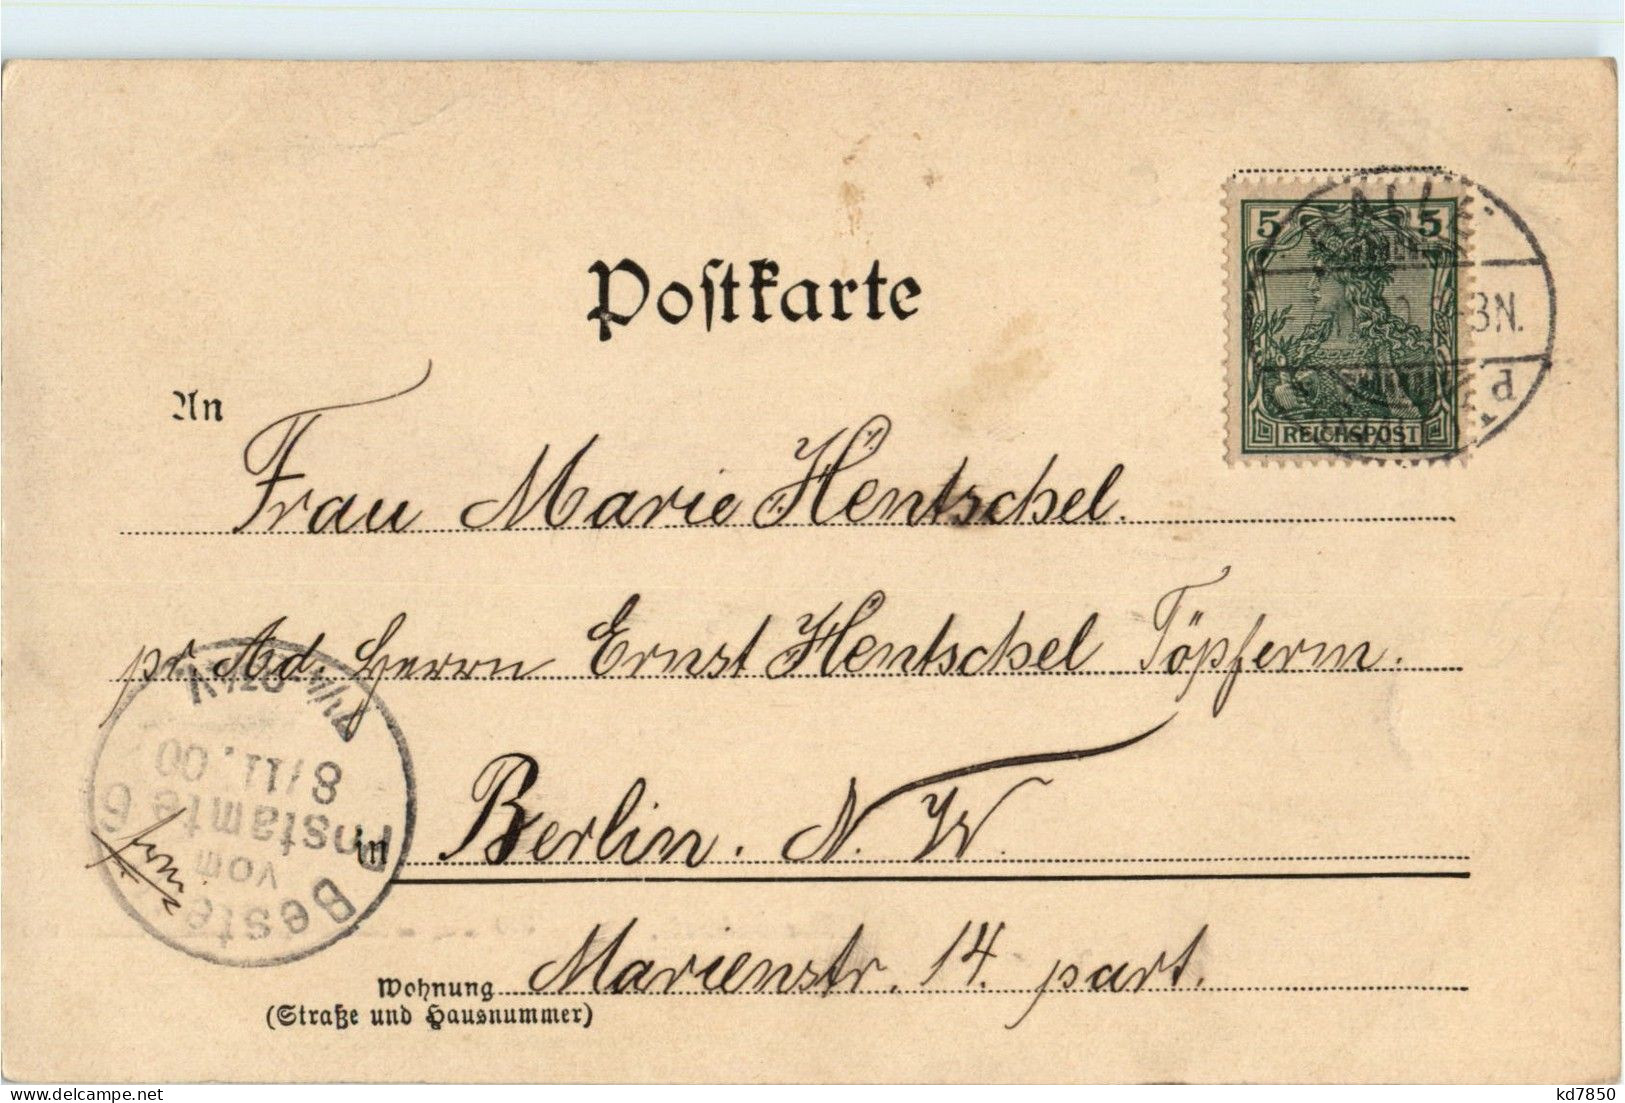 Postkarte
5 5
3N.
d
REICHSPOST
An
Frau Marie Hentschel.
pr. Ad. Herrn Ernst Hentschel Töpferm.
in Berlin. N. W.
Marienstr. 14. part.
Wohnung
(Straße und Hausnummer)
Beste
vom
Postamte 6
8/11.00
V
kd7850